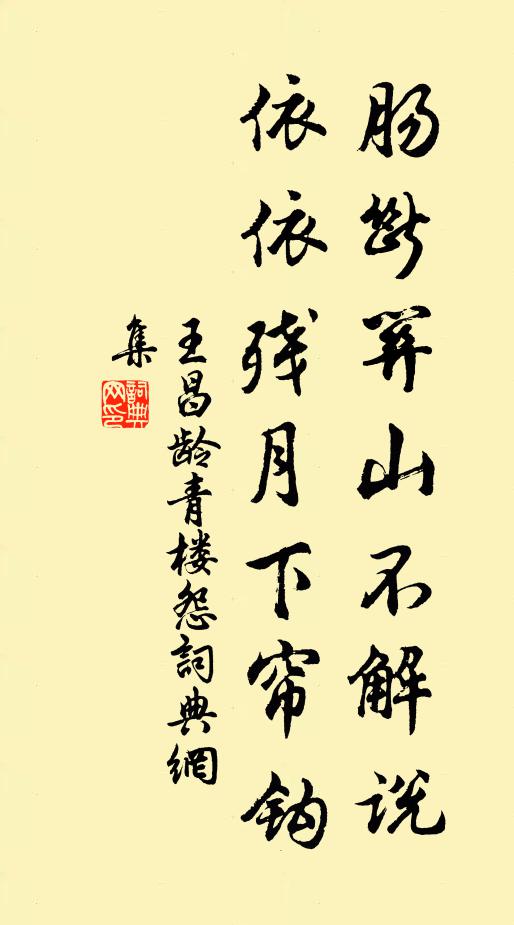 肠断关山不解说
依依残月下帘钩
王昌龄青楼怨词典網
集
詞典
网印